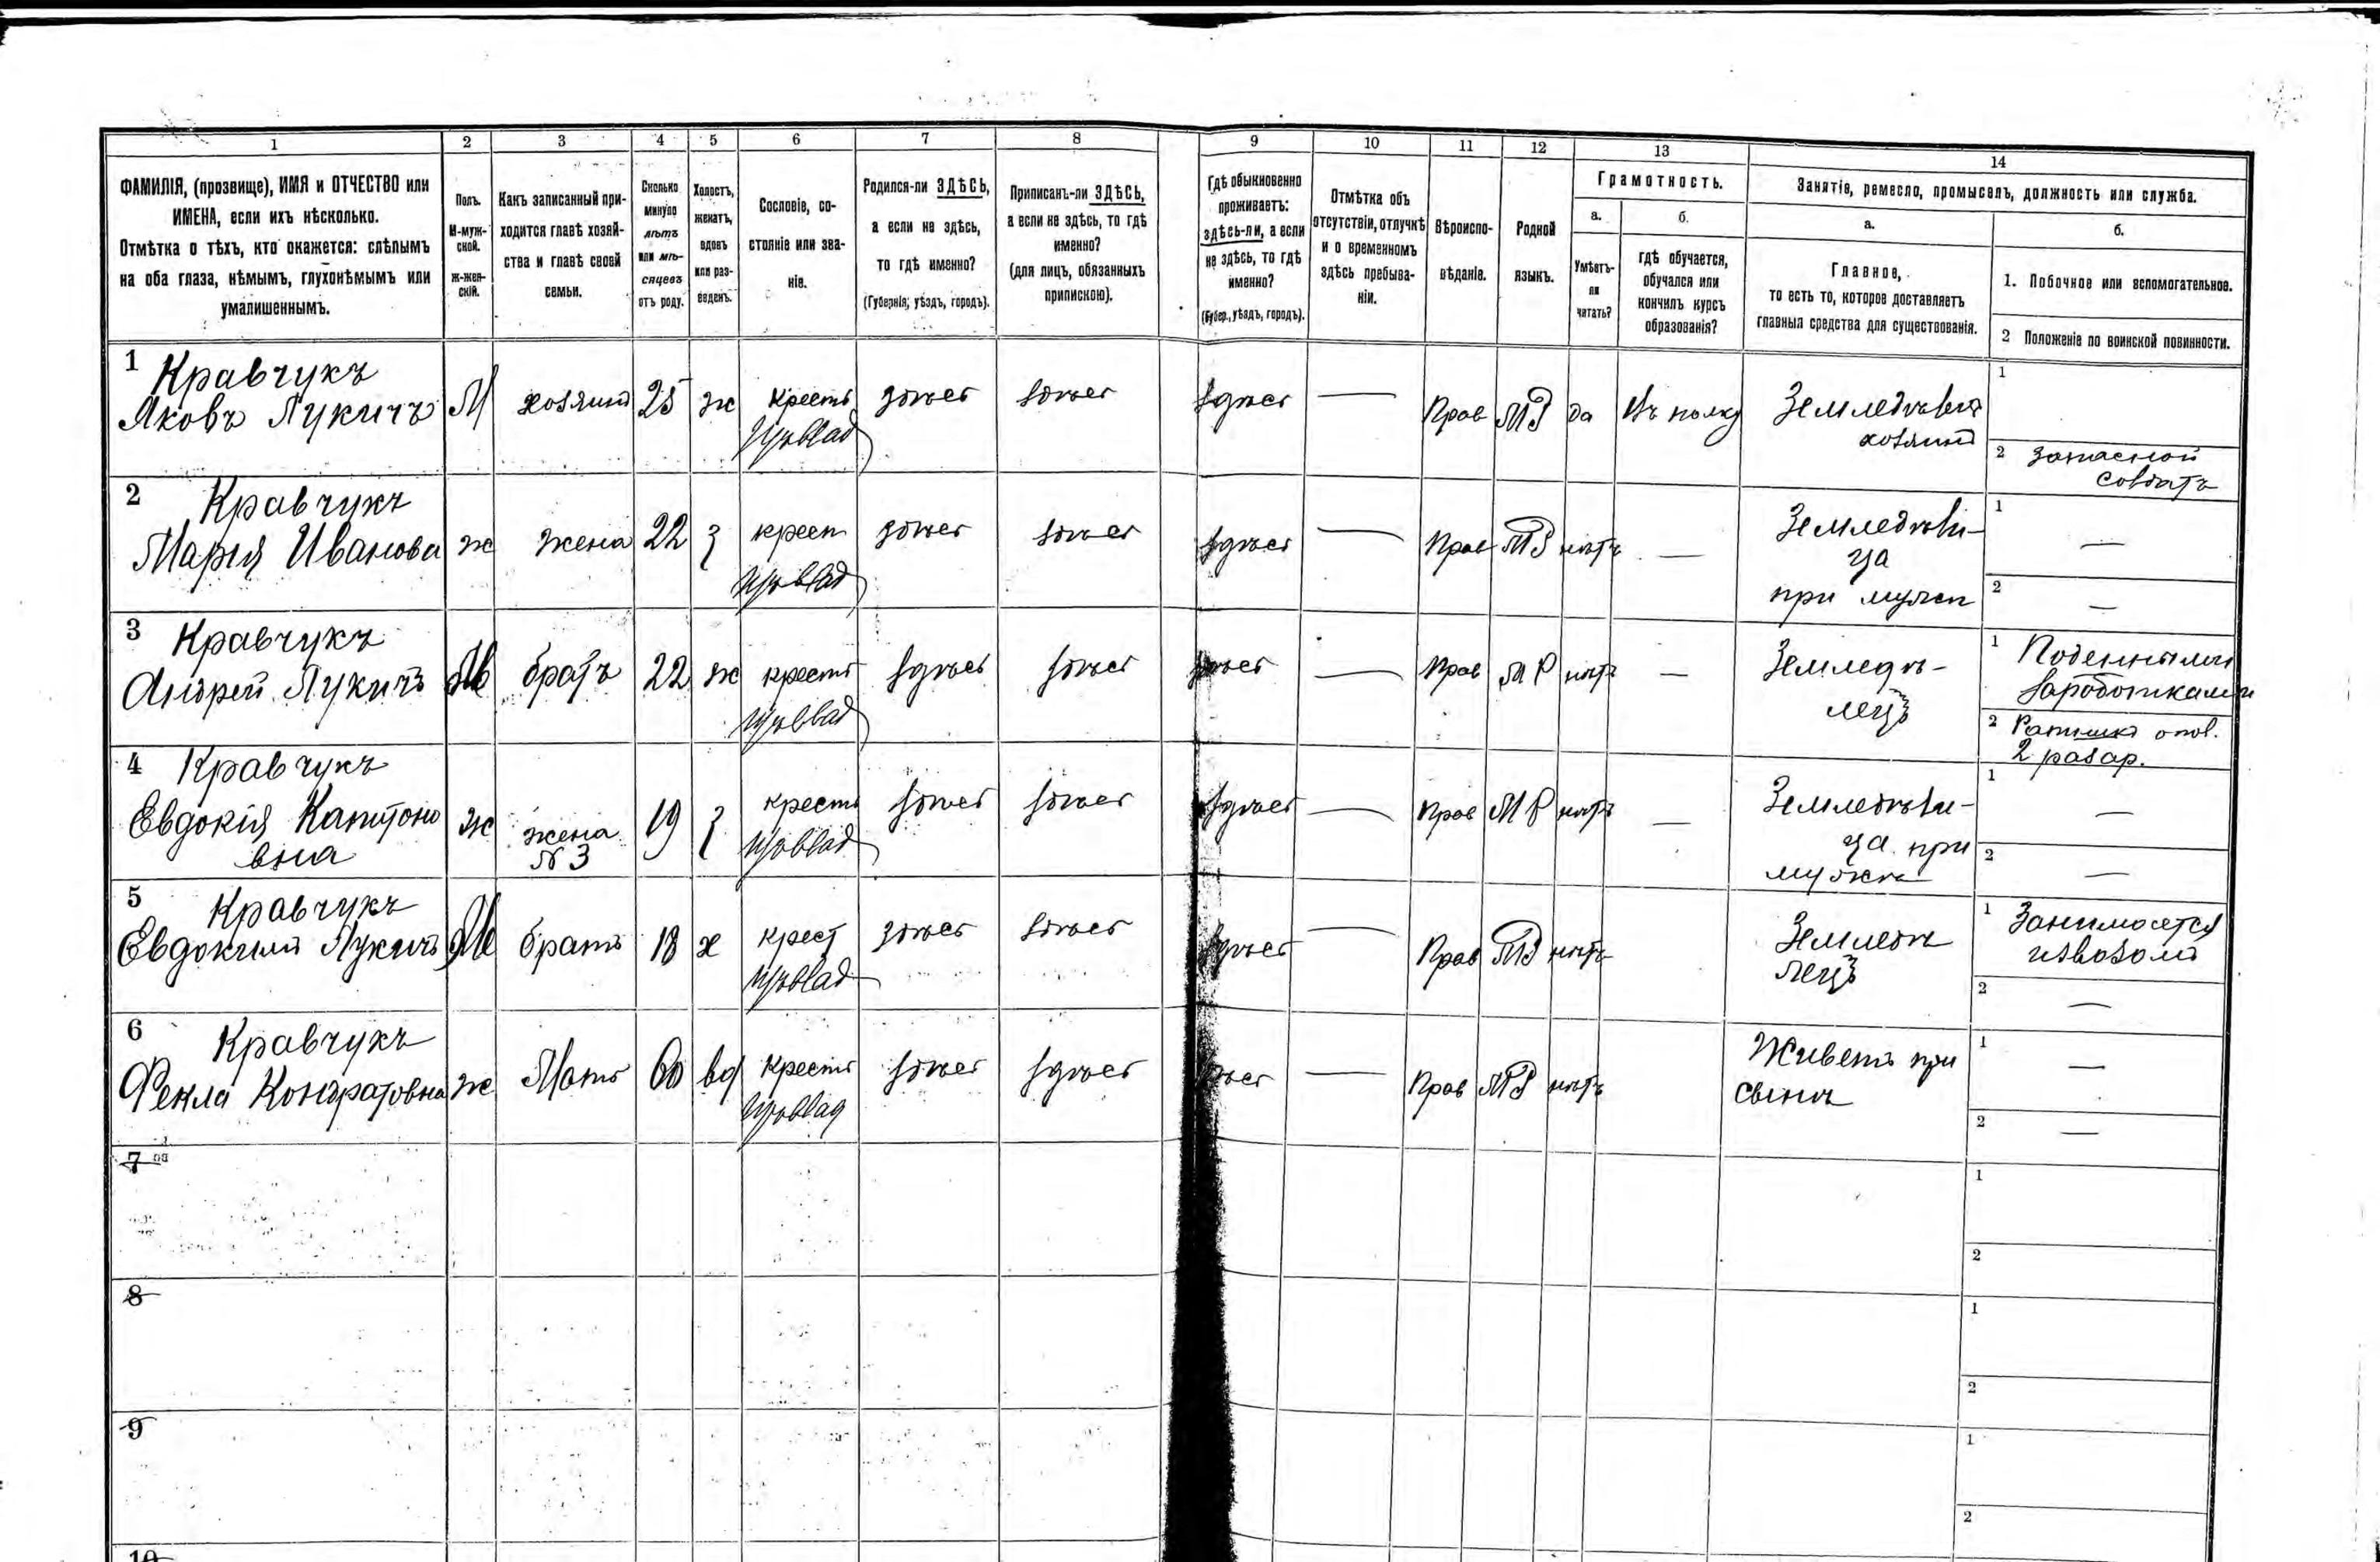 1 2 3 4 5 6 7 8 9 10 11 12 13 14
ФАМИЛІЯ, (прозвище), ИМЯ и ОТЧЕСТВО или
ИМЕНА, если ихъ нѣсколько.
Отмѣтка о тѣхъ, кто окажется: слѣпымъ
на оба глаза, нѣмымъ, глухонѣмымъ или
умалишеннымъ.
Полъ.
М-муж-
ской.
ж-жен-
скій.
Какъ записанный при-
ходится главѣ хозяй-
ства и главѣ своей
семьи.
Сколько
минуло
лѣтъ
или мѣ-
сяцевъ
отъ роду.
Холостъ,
женатъ,
вдовъ
или раз-
веденъ.
Сословіе, со-
стояніе или зва-
ніе.
Родился-ли ЗДѢСЬ,
а если не здѣсь,
то гдѣ именно?
(Губернія, уѣздъ, городъ).
Приписанъ-ли ЗДѢСЬ,
а если не здѣсь, то гдѣ
именно?
(для лицъ, обязанныхъ
припискою).
Гдѣ обыкновенно
проживаетъ:
здѣсь-ли, а если
не здѣсь, то гдѣ
именно?
(Губер., уѣздъ, городъ).
Отмѣтка объ
отсутствіи, отлучкѣ
и о временномъ
здѣсь пребыва-
ніи.
Вѣроиспо-
вѣданіе.
Родной
языкъ.
Грамотность.
а. б.
Умѣетъ-
ли
читать?
гдѣ обучается,
обучался или
кончилъ курсъ
образованія?
Занятіе, ремесло, промыселъ, должность или служба.
а.
Главное,
то есть то, которое доставляетъ
главныя средства для существованія.
б.
1. Побочное или вспомогательное.
2 Положеніе по воинской повинности.
1 Кравчукъ
Яковъ Лукичъ М хозяинъ 25 ж крестъ здѣсь здѣсь здѣсь — Прав МР да Въ полку
хозяинъ
1
2 Запасной
солдатъ
2 Кравчукъ
Марія Иванова ж жена 22 з крест здѣсь здѣсь здѣсь — Прав МР нѣтъ —
при мужѣ
1 —
2 —
3 Кравчукъ
Андрей Лукичъ М братъ 22 ж крестъ здѣсь здѣсь здѣсь — Прав МР нѣтъ — Земледѣ-
лецъ
1 Поденными
заработками
2 Ратникъ опол.
2 разр.
4 Кравчукъ
Евдокія Капитоно
вна ж жена
№ 3 19 з крестъ здѣсь здѣсь здѣсь — Прав МР нѣтъ —
ца при
мужѣ
1 —
2 —
5 Кравчукъ
Евдокимъ Лукичъ М братъ 18 х крест здѣсь здѣсь здѣсь — Прав МР нѣтъ Земледѣ
лецъ
1 Занимается
извозомъ
2 —
6 Кравчукъ
Фекла Кондратовна ж Мать 60 вд крестъ здѣсь здѣсь здѣсь — Прав МР нѣтъ Живетъ при
сынѣ
1 —
2 —
7
1
2
8
1
2
9
1
2
10